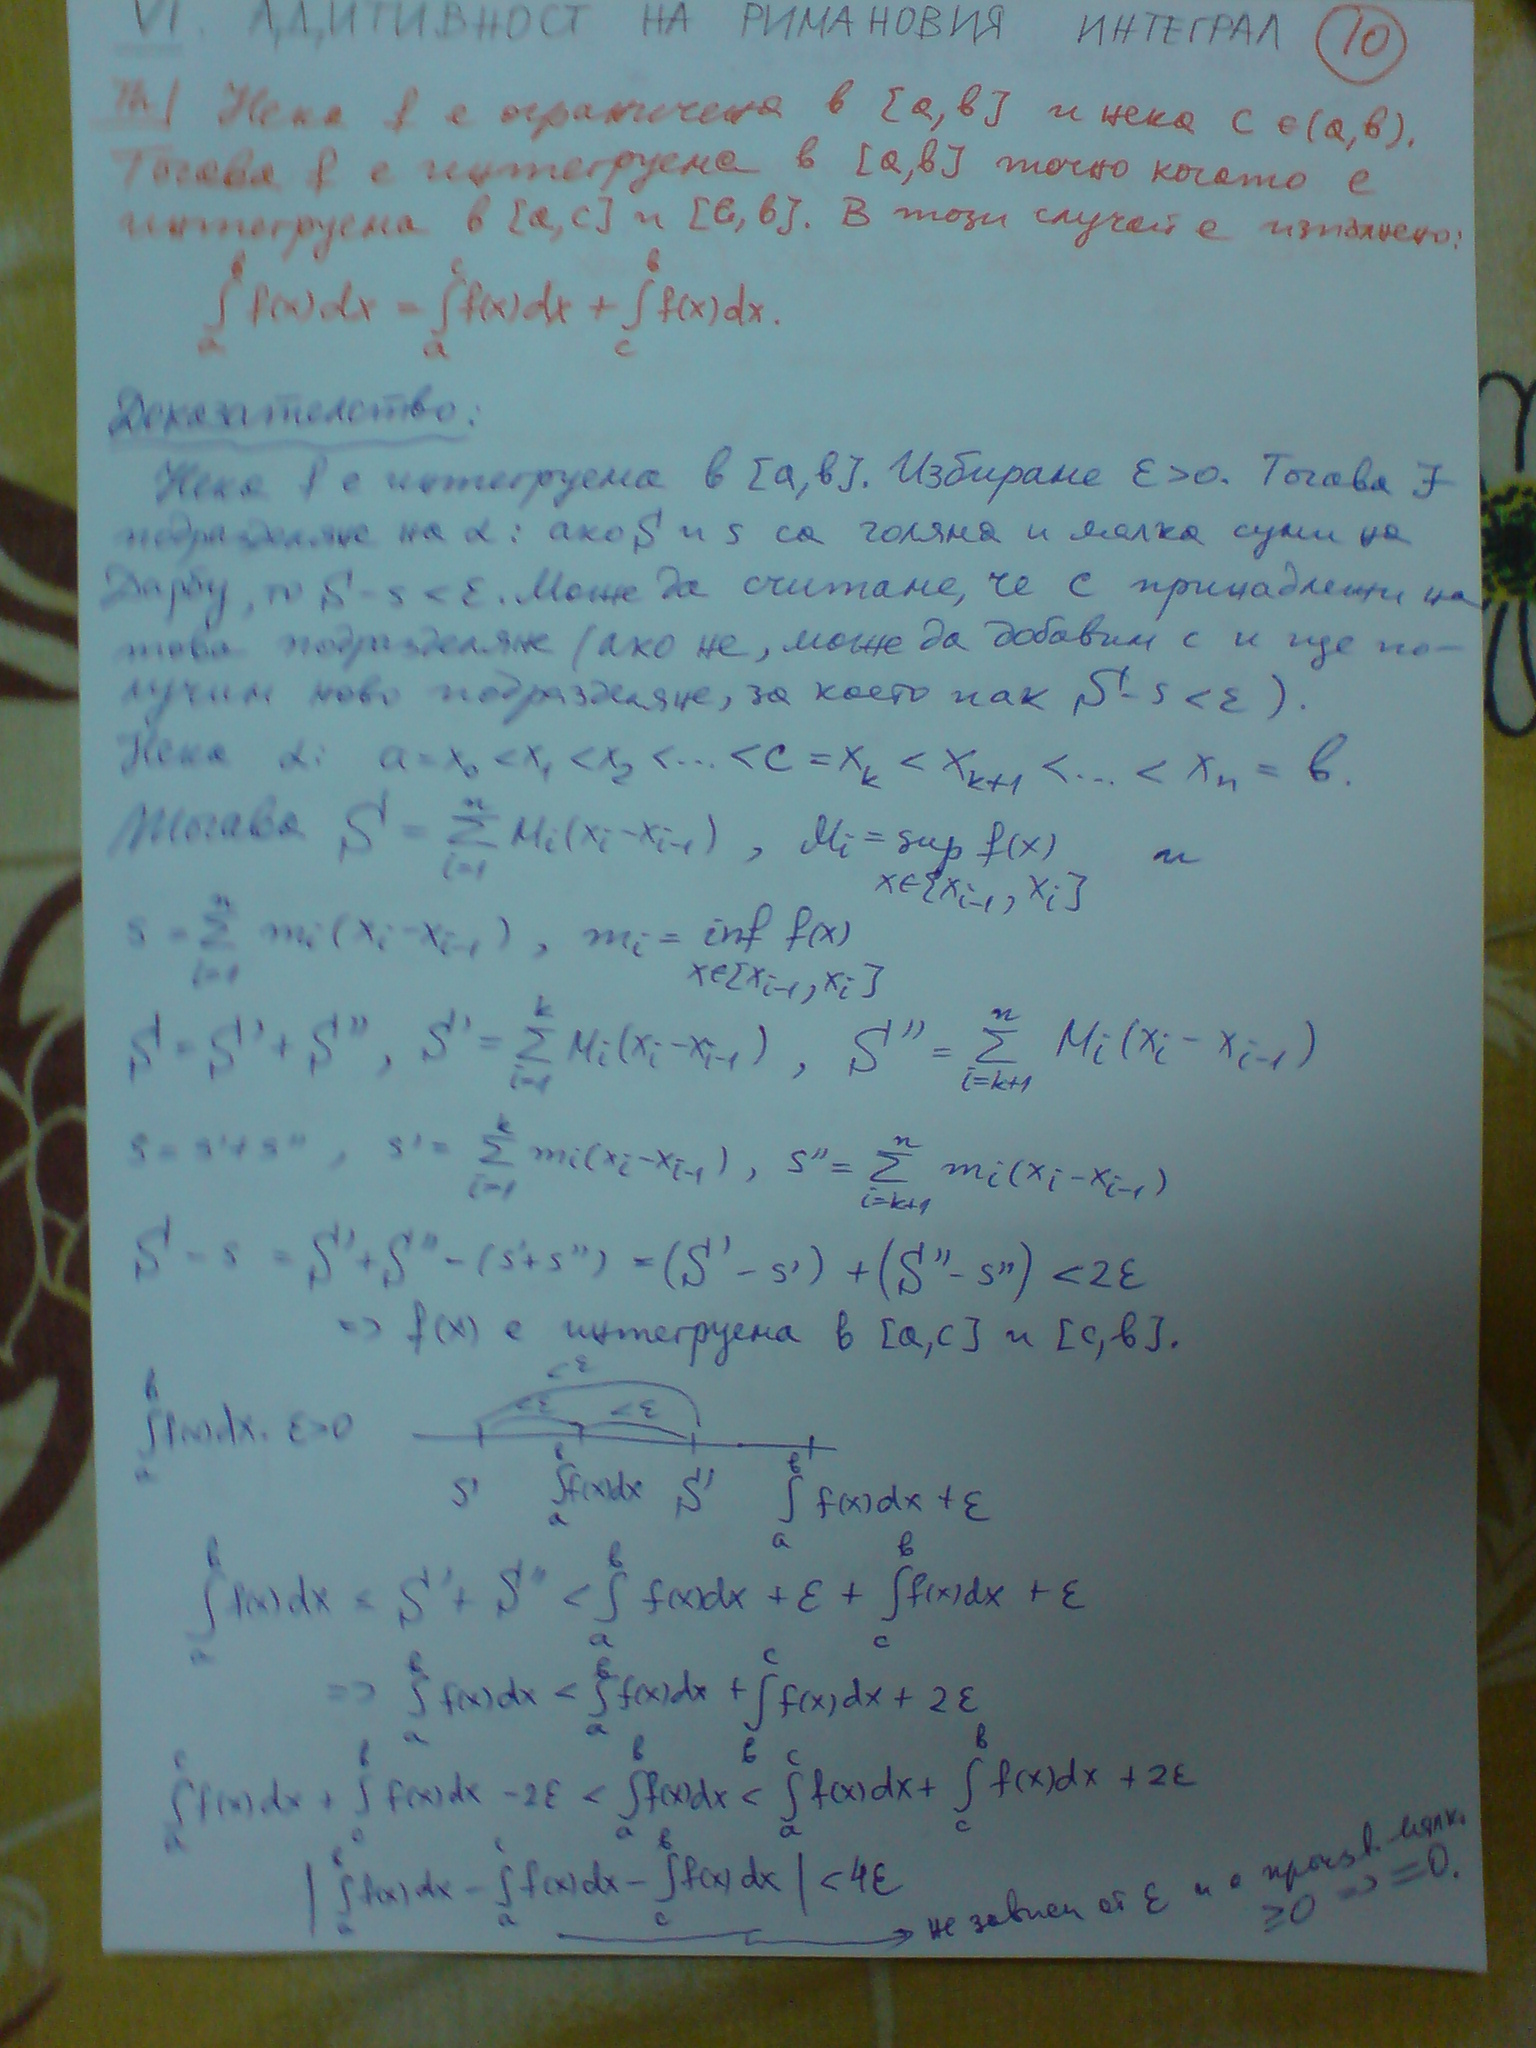 VI. АДИТИВНОСТ НА РИМАНОВИЯ ИНТЕГРАЛ 10
Th/ Нека f е ограничена в [a,b] и нека c ∈ (a,b).
Тогава f е интегруема в [a,b] точно когато е
интегруема в [a,c] и [b,b]. В този случай е изпълнено:
∫_a^b f(x)dx = ∫_a^c f(x)dx + ∫_c^b f(x)dx.
Доказателство:
Нека f е интегруема в [a,b]. Избираме ε>0. Тогава ∃
подразделяне на α: ако S и s са голяма и малка суми на
Дарбу, то S - s < ε. Може да считаме, че c принадлежи на
това подразделяне (ако не, може да добавим c и ще по-
лучим ново подразделяне, за което пак S - s < ε).
Нека α: a = x_0 < x_1 < x_2 < ... < c = x_k < x_{k+1} < ... < x_n = b.
Тогава S = ∑_{i=1}^n M_i(x_i - x_{i-1}), M_i = sup f(x) x∈[x_{i-1}, x_i] и
s = ∑_{i=1}^n m_i(x_i - x_{i-1}), m_i = inf f(x) x∈[x_{i-1}, x_i]
S = S' + S'', S' = ∑_{i=1}^k M_i(x_i - x_{i-1}), S'' = ∑_{i=k+1}^n M_i(x_i - x_{i-1})
s = s' + s'', s' = ∑_{i=1}^k m_i(x_i - x_{i-1}), s'' = ∑_{i=k+1}^n m_i(x_i - x_{i-1})
S - s = S' + S'' - (s' + s'') = (S' - s') + (S'' - s'') < 2ε
=> f(x) е интегруема в [a,c] и [c,b].
<ε
∫_a^b f(x)dx. ε>0 <ε <ε
s' ∫_a^b f(x)dx S' ∫_a^b f(x)dx + ε
∫_a^b f(x)dx ≤ S' + S'' < ∫_a^b f(x)dx + ε + ∫_c^b f(x)dx + ε
=> ∫_a^b f(x)dx < ∫_a^c f(x)dx + ∫_b^c f(x)dx + 2ε
∫_a^c f(x)dx + ∫_c^b f(x)dx - 2ε < ∫_a^b f(x)dx < ∫_a^c f(x)dx + ∫_c^b f(x)dx + 2ε
| ∫_a^b f(x)dx - ∫_a^c f(x)dx - ∫_c^b f(x)dx | < 4ε
→ не зависи от ε и е произв. малк.
≥0 => =0.